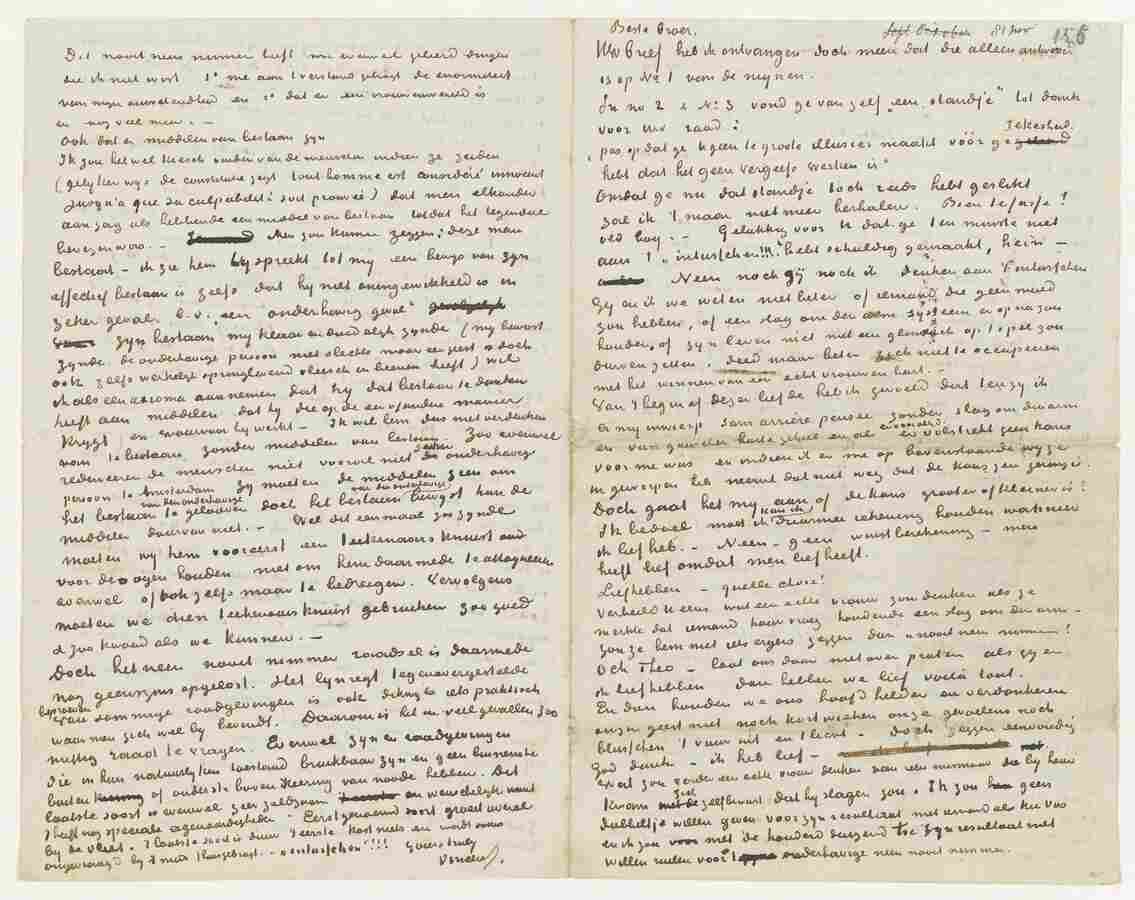 Dit nooit neen nimmer heeft me evenwel geleerd dingen
die ik niet wist 1° me aan 't verstand gebragt de enormiteit
van mijn onwetendheid en 2° dat er een vrouwenwereld is
en nog veel meer. —
Ook dat er middelen van bestaan zyn
Ik zou het wel kiesch vinden van de menschen indien ze zeiden
(gelyker wys de constitutie zegt tout homme est considéré innocent
jusqu'à que sa culpabilité soit prouvée) dat men elkander
aanzag als hebbende een middel van bestaan totdat het tegendeel
bewezen word. — Men zou kunnen zeggen: deze man
bestaat — ik zie hem hy spreekt tot my een bewys van zyn
effectief bestaan is zelfs dat hy niet oningewikkeld is in
zeker geval b.v. een "onderhavig geval"
Zyn bestaan my klaar en duidelyk zynde (my bewust
zynde de onderhavige persoon niet slechts maar een geest is doch
ook zelfs werkelyk springlevend vleesch en beenen heeft) wil
ik als een axioma aannemen dat hy dat bestaan te danken
heeft aan middelen dat hy die op de een of andere manier
krygt en waarvoor hy werkt — Ik wil hem dus niet verdenken
van te bestaan zonder middelen van bestaan. Zoo evenwel
redeneeren de menschen niet vooral niet de onderhavige
persoon te Amsterdam Zy moeten de middelen zien om
het bestaan van den onderhavige te gelooven doch het bestaan van den onderhavige bewyst hun de
middelen daarvan niet. — Wel dit eenmaal zoo zynde
moeten wy hem vooreerst een teekenaars knuist
voor de oogen houden niet om hem daarmede te attaqueeren
evenwel of ook zelfs maar te bedreigen. Vervolgens
moeten we dien teekenaarsknuist gebruiken zoo goed
& zoo kwaad als we kunnen. —
Doch het neen nooit nimmer raadsel is daarmede
nog geenszins opgelost. Het lynregt tegenovergestelde
beproeven van sommige raadgevingen is ook dikwyls iets praktisch
waar men zich wel by bevindt. Daarom is het in veel gevallen zoo
nuttig raad te vragen. Evenwel zyn er raadgevingen
die in hun natuurlyken toestand bruikbaar zyn en geen binnenste
buiten of onderste boven keering van noode hebben. Dit
laatste soort is evenwel zeer zeldzaam en wenschelyk want
't heeft nog speciale eigenaardigheden. Eerstgenoemd soort groeit overal
by de vleet. 't laatste soort is duur 't eerste kost niets en wordt soms
ongevraagd by 't mud thuisgebragt. — "intusschen"!!! Yours truly
Vincent.
Beste broer,
Sept October 81 Nov 156
Uw brief heb ik ontvangen doch meen dat die alleen antwoord
is op No 1 van de mynen.
In no 2 & No 3 vond ge van zelf "een standje" tot dank
voor uw raad:
"pas op dat ge U geen te groote illusies maakt vóór ge zekerheid
hebt dat het geen vergeefs werken is"
Omdat ge nu dat standje toch reeds hebt geslikt
zal ik 't maar niet meer herhalen. Bien te fasse!
old boy. — Gelukkig voor U dat ge ten minste niet
aan 't "intusschen!!!" hebt schuldig gemaakt, hein —
Neen noch gy noch ik denken aan 't intusschen
Gy en ik we weten niet beter of iemand, die geen moed
zou hebben, of een slag om den arm er op na zou
houden, of zyn leven niet met een glimlach op 't spel zou
durven zetten, deed maar beter zich niet te occupeeren
met het winnen van een echt vrouwen hart. —
Van 't begin af dezer liefde heb ik gevoeld dat tenzy ik
er my inwierp sans arrière pensée zonder slag om den arm
en van ganscher harte geheel en al en voor altoos er volstrekt geen kans
voor me was en indien ik er me op bovenstaande wyze
in geworpen heb neemt dat niet weg dat de kans zeer gering is.
Doch gaat het my aan of de kans grooter of kleiner is?
Ik bedoel moet ik kan ik daarmee rekening houden wanneer
ik lief heb. — Neen — geen winst berekening — men
heeft lief omdat men lief heeft.
Liefhebben — quelle chose!
Verbeeld U eens wat een echte vrouw zou denken als ze
merkte dat iemand haar vroeg houdende een slag om den arm —
zou ze hem niet iets ergers zeggen dan "nooit neen nimmer"!
Och Theo — laat ons daar niet over praten als gy en
ik liefhebben dan hebben we lief voilà tout.
En dan houden we ons hoofd helder en verdonkeren
onzen geest niet noch kortwieken onze gevoelens noch
blusschen 't vuur uit en 't licht — doch zeggen eenvoudig
God dank — ik heb lief —
Wat zou verder een echte vrouw denken van een minnaar die by haar
kwam zelfbewust dat hy slagen zou. Ik zou geen
dubbeltje willen geven voor zyn resultaat met iemand als Kee Vos
en ik zou met de honderd duizend toe zyn resultaat niet
willen ruilen voor 't onderhavige neen nooit nimmer.